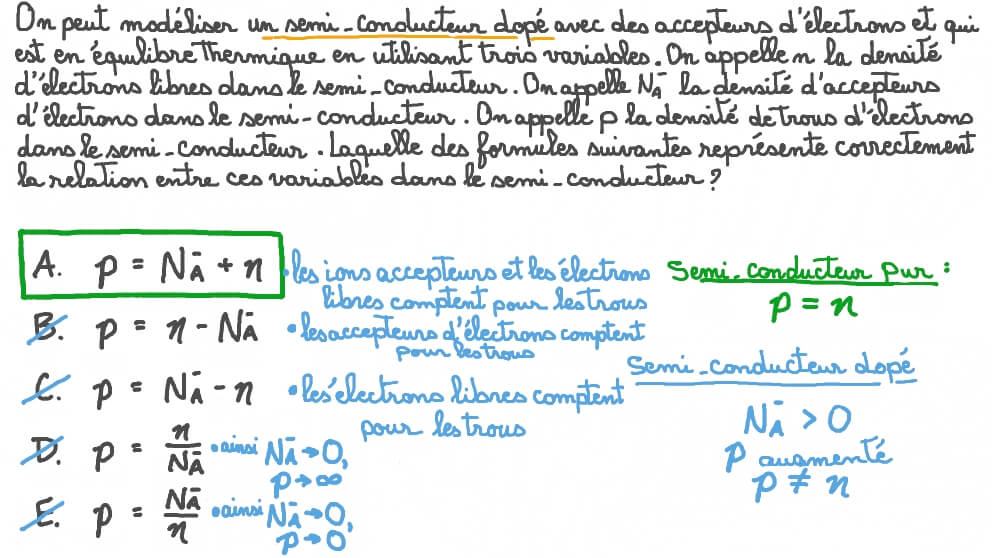 On peut modéliser un semi-conducteur dopé avec des accepteurs d'électrons et qui
est en équilibre thermique en utilisant trois variables. On appelle n la densité
d'électrons libres dans le semi-conducteur. On appelle NĀ la densité d'accepteurs
d'électrons dans le semi-conducteur. On appelle p la densité de trous d'électrons
dans le semi-conducteur. Laquelle des formules suivantes représente correctement
la relation entre ces variables dans le semi-conducteur?
A. p = NĀ + n
• les ions accepteurs et les électrons
libres comptent pour les trous
B. p = n - NĀ
• les accepteurs d'électrons comptent
pour les trous
C. p = NĀ - n
• les électrons libres comptent
pour les trous
D. p = n/NĀ
• ainsi NĀ → 0,
p → ∞
E. p = NĀ/n
• ainsi NĀ → 0,
p → 0
Semi-conducteur pur :
p = n
Semi-conducteur dopé
NĀ > 0
p augmenté
p ≠ n